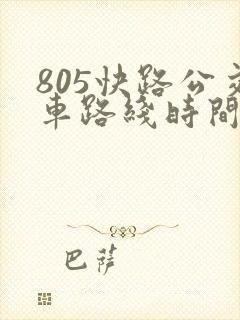 805快路公交
車路綫時間
巴薩